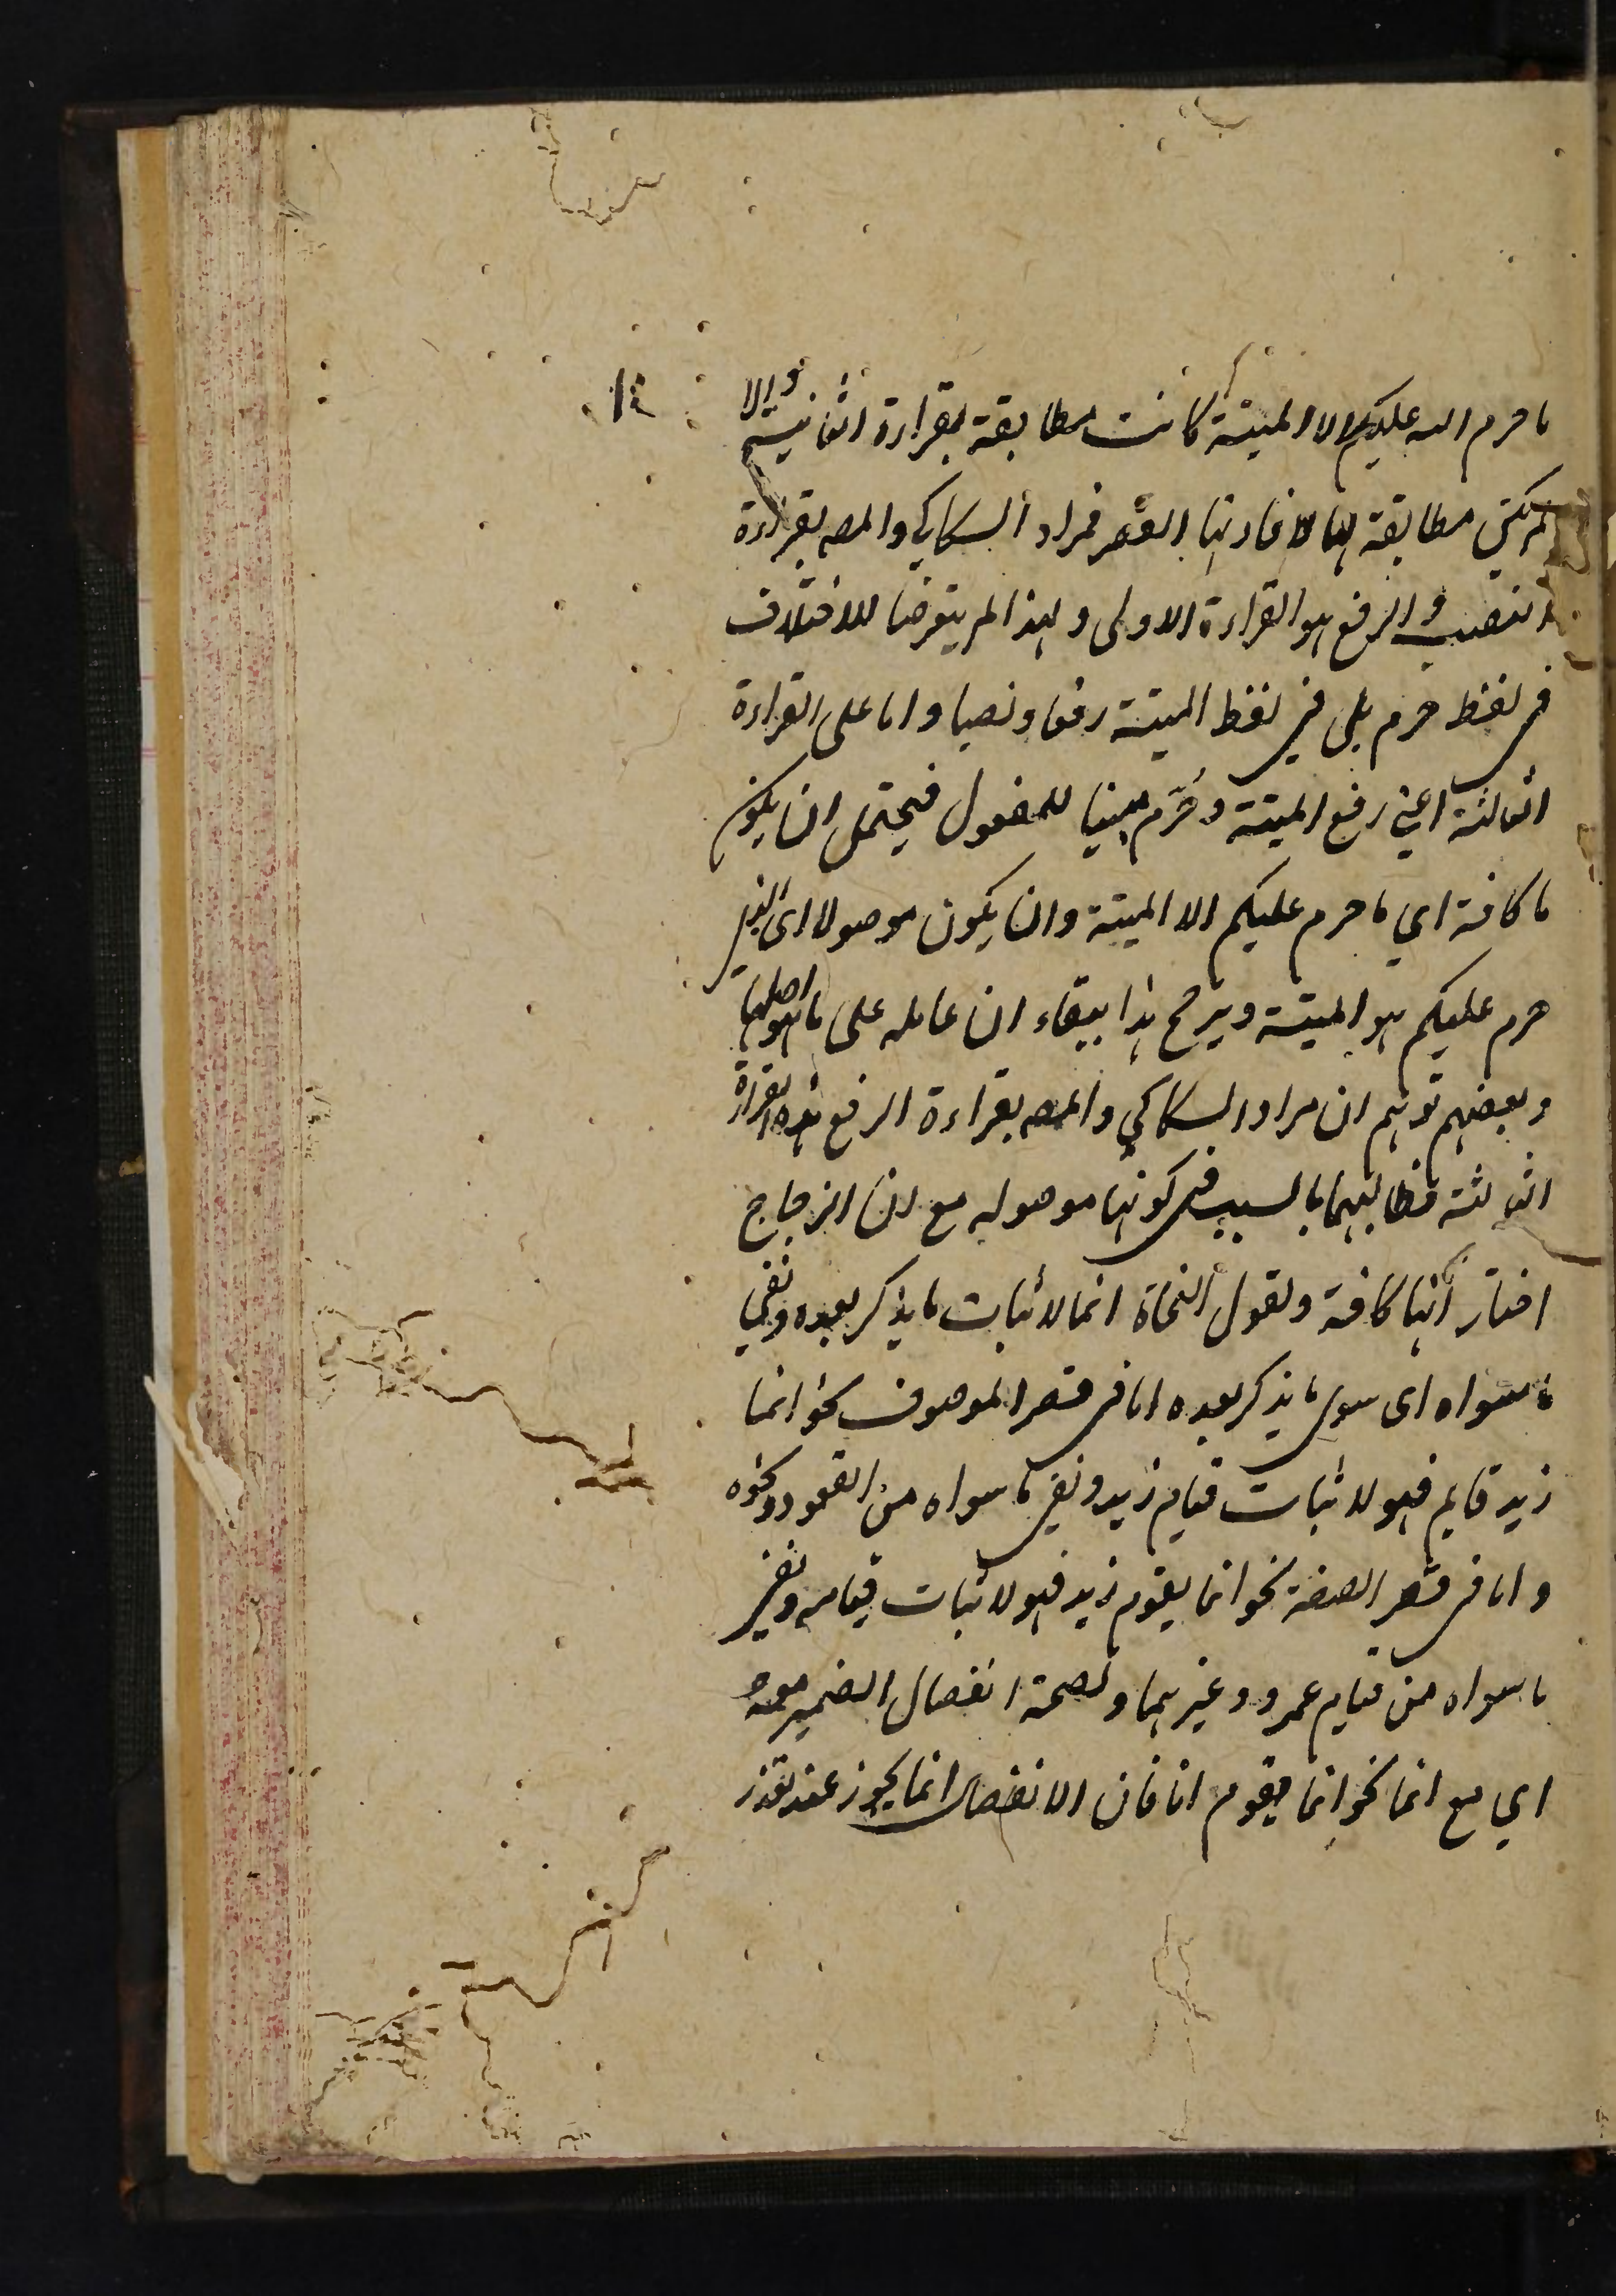 ما حرم الله عليكم الا الميتة كانت مطابقة لقراءة الثانية والا
لم يكن مطابقة لها لافادتها القصر فمراد السكاكي والمصـ بقراءة
النصب والرفع هو القراءة الاولى ولهذا لم يتعرضا للاختلاف
في لفظ حرم بل في لفظ الميتة رفعا ونصبا واما على القراءة
الثالثة اعني رفع الميتة وحُرّم مبنيا للمفعول فيحتمل ان يكون
ما كافة اي ما حرم عليكم الا الميتة وان يكون موصولا اى الذي
حرم عليكم هو الميتة ويرجح هذا ببقاء ان عامله على ما هو اصلها
وبعضهم توهم ان مراد السكاكي والمصـ بقراءة الرفع هذه القراءة
الثالثة فطالبهما بالسبب في كونها موصوله مع ان الزجاج
اختار انها كافة ولقول النحاة انما لاثبات ما يذكر بعده ونفي
ما سواه اى سوى ما يذكر بعده اما في قصر الموصوف نحو انما
زيد قايم فهو لاثبات قيام زيد ونفي ما سواه من القعود ونحوه
واما في قصر الصفة نحو انما يقوم زيد فهو لاثبات قيامه ونفي
ما سواه من قيام عمرو وغيرهما ولصحة انفصال الضمير معه
اي مع انما نحو انما يقوم انا فان الانفصال انما يجوز عند تعذر